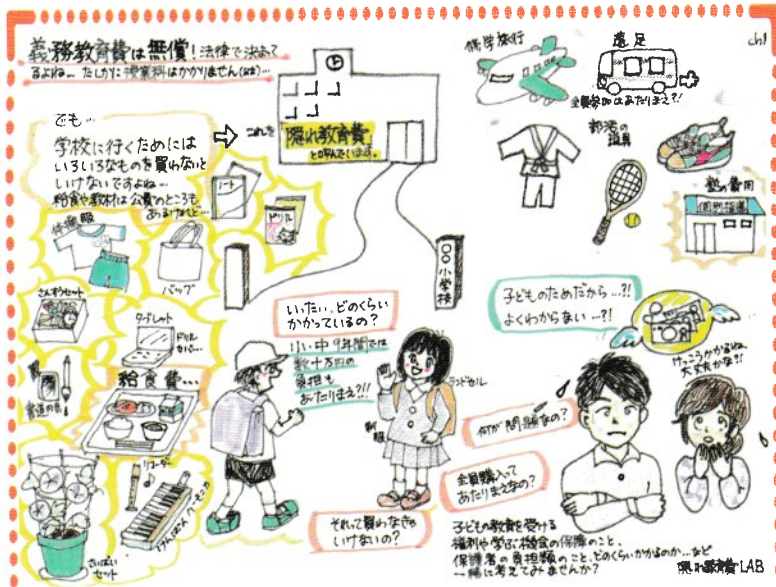 義務教育費は無償！法律で決めて
るよね… たしかに授業料はかかりません(公立)…
でも…
学校に行くためには
いろいろなものを買わないと
いけないですよね…
給食や教材は公費のところも
あるけれど…
これを
隠れ教育費
と呼んでいます。
修学旅行
遠足
ch1
全員参加はあたりまえ?!
部活の
道具
塾の費用
個別指導
ノート
ドリル
体操服
バッグ
さんすうセット
タブレット
ドリル
カバー…
書道の具
給食費…
リコーダー
けんばんハーモニカ
さいばい
セット
〇〇小学校
いったい、どのくらい
かかっているの？
小・中9年間では
数十万円の
負担も
あたりまえ?!!
ランドセル
制服
それって買わなきゃ
いけないの？
子どものためだから…?!
よくわからない…?!
けっこうかかるわね、
大丈夫かな?!
何が問題なの？
全員購入って
あたりまえなの？
子どもの教育を受ける
権利や学ぶ機会の保障のこと、
保護者の負担額のこと、どのくらいかかるのか…など
一緒に考えてみませんか？
隠れ教育費LAB